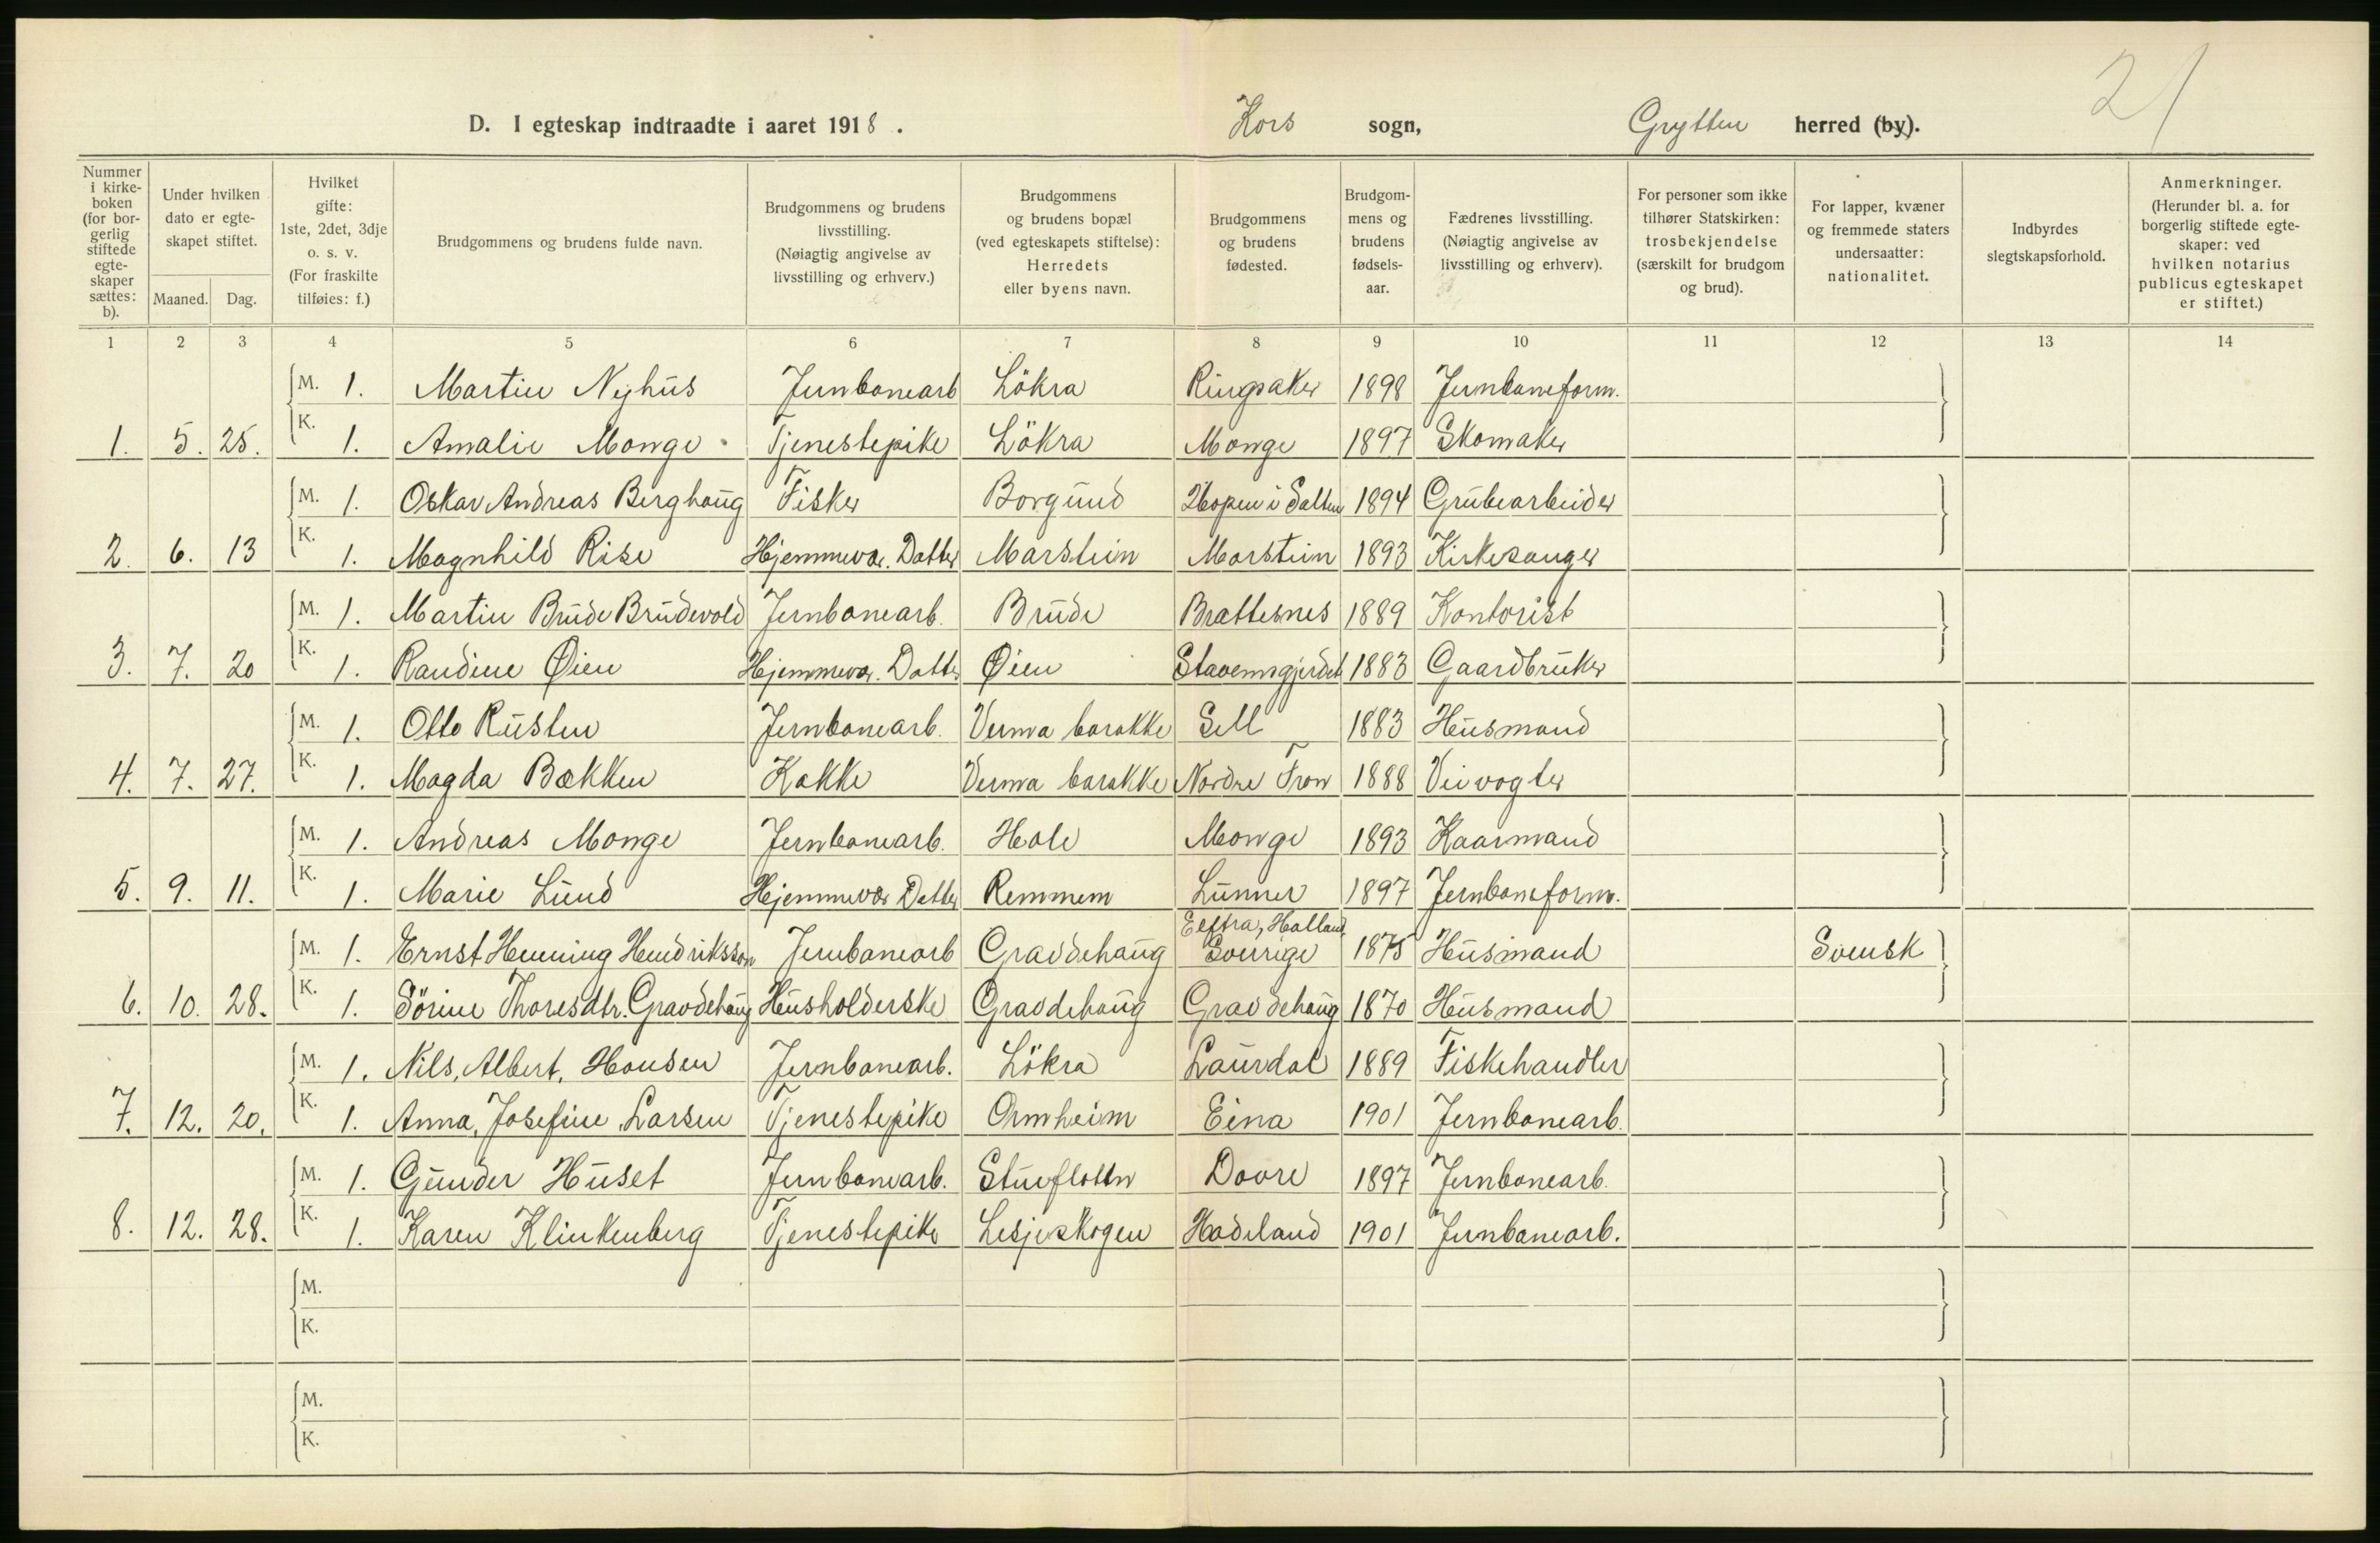 21
D. I egteskap indtraadte i aaret 1918. Kors sogn, Grytten herred (by).
Nummer i kirkeboken (for borgerlig stiftede egteskaper sættes: b).
Under hvilken dato er egteskapet stiftet.
Maaned. Dag.
Hvilket gifte: 1ste, 2det, 3dje o. s. v. (For fraskilte tilføies: f.)
Brudgommens og brudens fulde navn.
Brudgommens og brudens livsstilling. (Nøiagtig angivelse av livsstilling og erhverv.)
Brudgommens og brudens bopæl (ved egteskapets stiftelse): Herredets eller byens navn.
Brudgommens og brudens fødested.
Brudgommens og brudens fødselsaar.
Fædrenes livsstilling. (Nøiagtig angivelse av livsstilling og erhverv).
For personer som ikke tilhører Statskirken: trosbekjendelse (særskilt for brudgom og brud).
For lapper, kvæner og fremmede staters undersaatter: nationalitet.
Indbyrdes slegtskapsforhold.
Anmerkninger. (Herunder bl. a. for borgerlig stiftede egteskaper: ved hvilken notarius publicus egteskapet er stiftet.)
1 2 3 4 5 6 7 8 9 10 11 12 13 14
M. 1. Martin Nyhus Jernbanearb Lökra Ringsaker 1898 Jernbaneform.
1. 5. 25. K. 1. Amalie Monge Tjenestepike Lökra Monge 1897 Skomaker
M. 1. Oskar Andreas Berghaug Fisker Borgund Hopen i Salten 1894 Grubearbeider
2. 6. 13 K. 1. Magnhild Rise Hjemmevær. Datter Marstein Marstein 1893 Kirkesanger
M. 1. Martin Brude Brudevold Jernbanearb. Brude Brattesnes 1889 Kontorist
3. 7. 20 K. 1. Randine Øien Hjemmevær. Datter Øien Stavemsgjerdet 1883 Gaardbruker
M. 1. Otto Rusten Jernbanearb. Verma barakke Sell 1883 Husmand
4. 7. 27. K. 1. Magda Bækken Kokke Verma barakke Nordre Fron 1888 Veivogter
M. 1. Andreas Monge Jernbanearb. Hole Monge 1893 Kaarmand
5. 9. 11. K. 1. Marie Lund Hjemmevær Datter Remmem Lunner 1897 Jernbaneform.
Eeftra, Halland,
M. 1. Ernst Henning Hendriksson Jernbanearb Gravdehaug Sverrige 1875 Husmand Svensk
6. 10. 28. K. 1. Sörine Thoresdtr. Gravdehaug Husholderske Gravdehaug Gravdehaug 1870 Husmand
M. 1. Nils, Albert, Hansen Jernbanearb. Lökra Laurdal 1889 Fiskehandler
7. 12. 20. K. 1. Anna, Josefine, Larsen Tjenestepike Ormheim Eina 1901 Jernbanearb.
M. 1. Gunder Huset Jernbanearb. Stueflotten Dovre 1897 Jernbanearb.
8. 12. 28. K. 1. Karen Klinkenberg Tjenestepike Lesjeskogen Hadeland 1901 Jernbanearb.
M.
K.
M.
K.